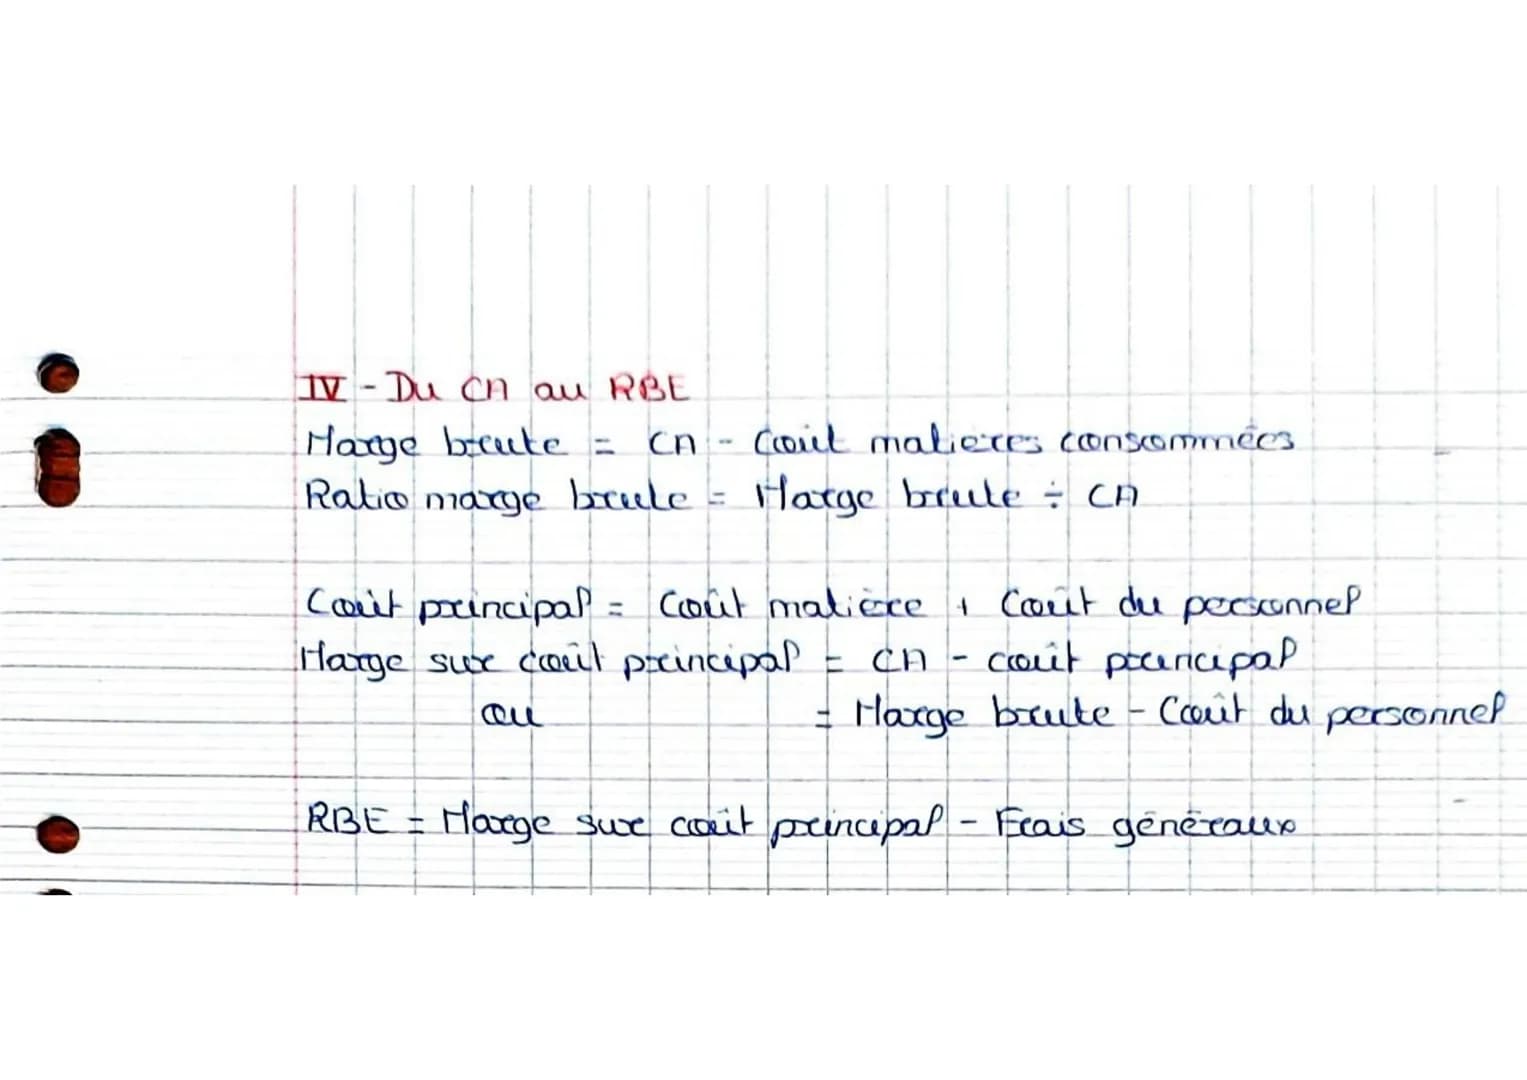 IV - Du CA au RBE
Marge brute = CA - Coût matières consommées
Ratio marge brute = Marge brute ÷ CA
Coût principal = Coût matière + Coût du personnel
Marge sur coût principal = CA - coût principal
ou = Marge brute - Coût du personnel
RBE = Marge sur coût principal - Frais généraux